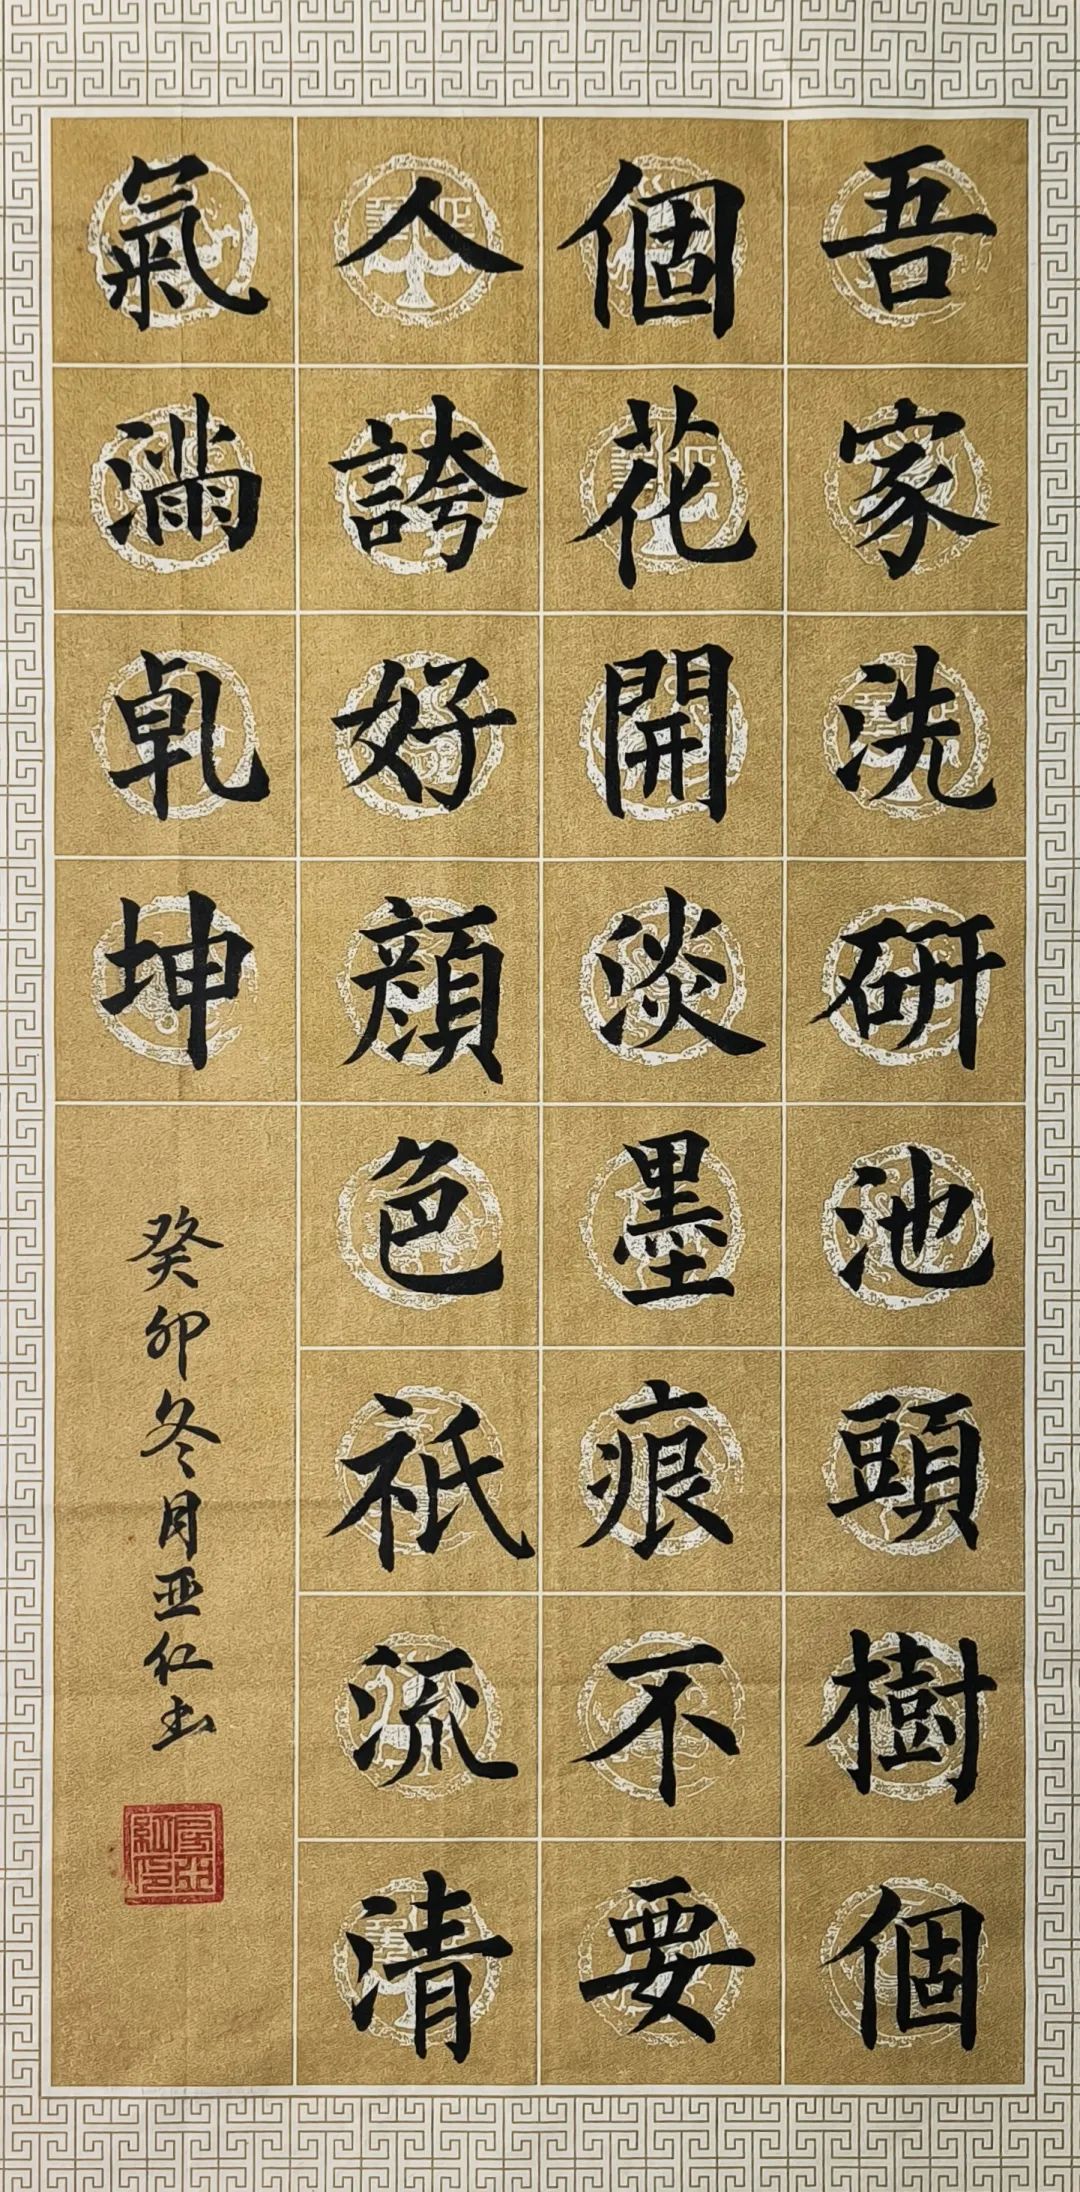 吾家洗研池頭樹個
個花開淡墨痕不要
人誇好顔色祇流清
氣滿乹坤
癸卯冬月亚仁书